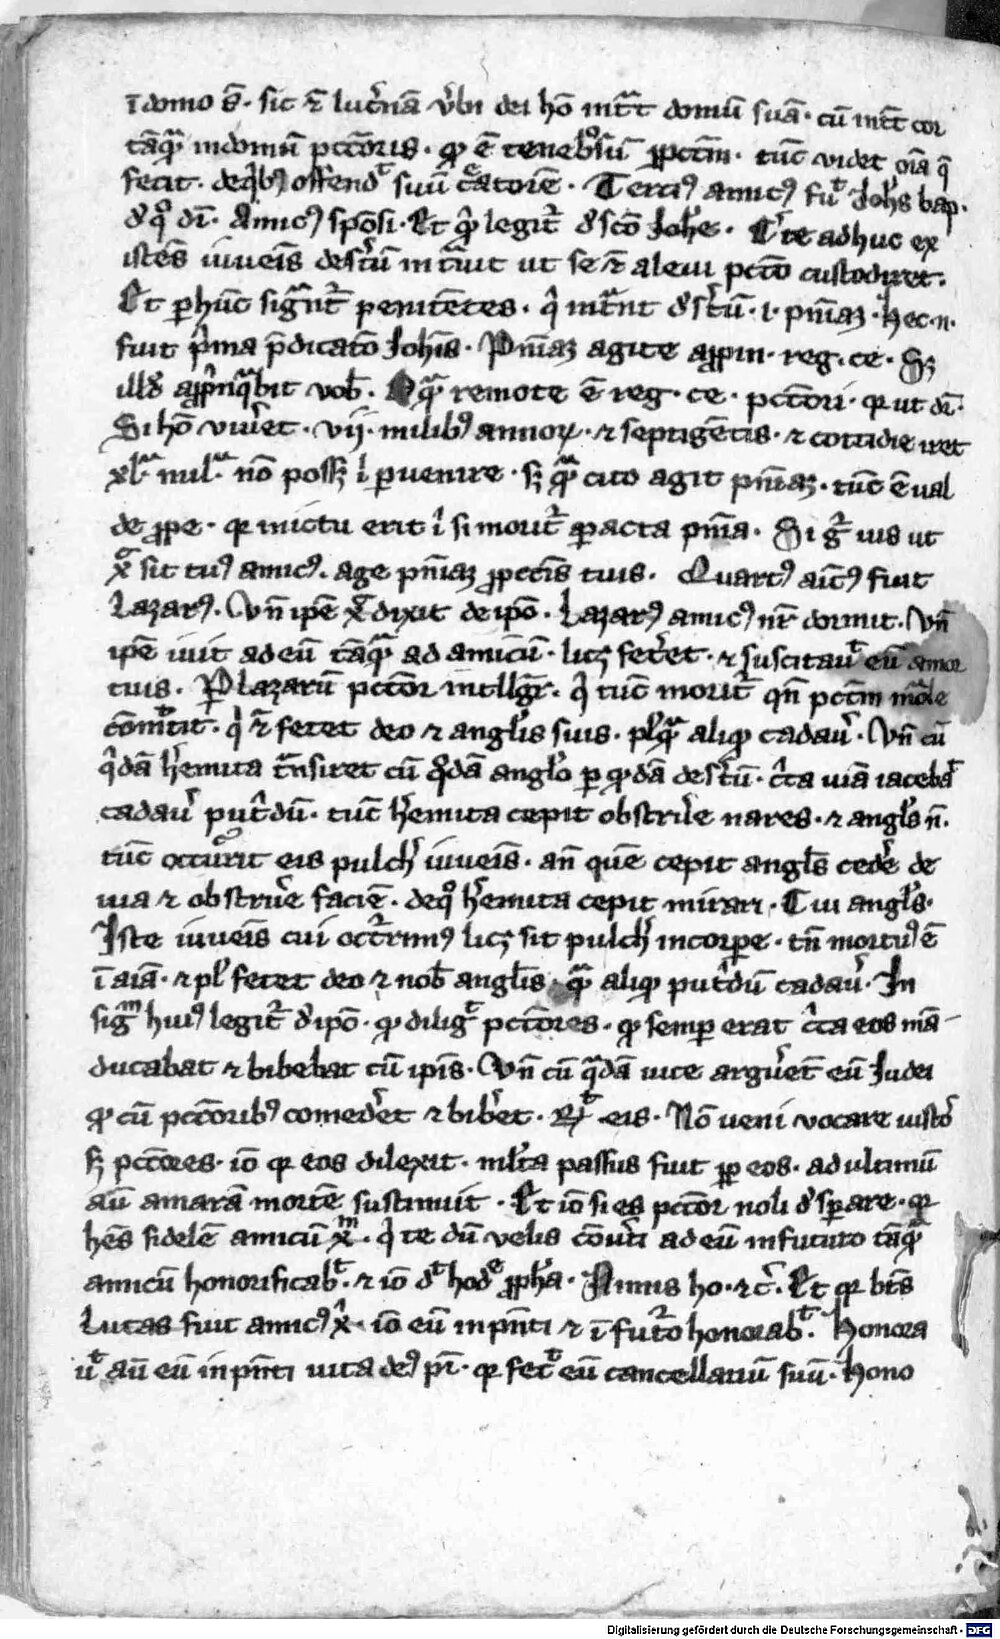 ī domo ē· sic ē lucnā vbi dei hō mtͣt domū suā· cū mtt̄ cor
tāqͣ in domū pctōris· qꝫ ē tenebͦsū ꝓpctm̄· tūc videt oīa q̄
fecit· de qͥbꝰ offend̄ suū cͤatorē· Terciꝰ amicꝰ fuͭ Johs bap·
đ qͦ dī· Amicꝰ spōsi· Et qͥ legitͬ đ scō Johē· Cͥte adhuc ex
istēs iuueīs destū intͣuit ut se ē aleui pctō custodiret·
Et per hūc sigͣntͬ penitētes· qͥ intͣnt đstū· i· pniāꝫ· hec·n·
fuit pͥma pͥdicatō Johīs· Pniāꝫ agite appin· reg· ce· Sꝫ
illđ apͥpnqͣbit vob̄· qͣ remote ē reg· ce· pctōri· qꝫ ut dī·
Si hō viueͥt· vij· milibꝰ annoꝝ· ⁊ septigētis· ⁊ cottidie iret
xlͣ mil·ͣ nō possꝫ ꝑuenire· sꝫ qͣ cito agit pniāꝫ· tūc ē ual
de ꝓpe· qꝫ in ictu erit ī si moritͬ ꝑacta pniā· Si gͦ uis ut
xͦ sit tuꝰ amicꝰ· age pniāꝫ ꝓ pctīs tuis· Quartꝰ aīcꝰ fuit
Lazarꝰ· Vn̄ ipē xͨ dixit de ipō· Lazarꝰ amicꝰ nr̄ dormit· Vn̄
ipē iuit ad eū tāqͣ ad amicū· licꝫ feteͥt· ⁊ suscitauͭ eū amor
tuis· Ꝑ Lazarū pctōr intllgͬ· qͥ tūc moritͬ qn̄ pctm̄ mͣle
cōmͭtit· qͥ ⁊ fetet deo ⁊ anglis suis· plqͣ aliqꝫ cadauͥ· Vn̄ cū
qͥdā hͥemita tn̄siret cū qͦdā anglo ꝑ qꝫdā destū· cͥca uiā iacebͣ
cadauͥ putͥdū· tūc hͥemita cepit obstruͥe nares· ⁊ angls n̄·
tūc occurrit eis pulchͥ iuueīs· an̄ quē cepit angls cedeͥ de
uia ⁊ obstruͥe faciē· de qͦ hͥemita cepit mirari· Cui angls·
Iste iuueīs cui occͬrimꝰ licꝫ sit pulchͥ in corpe· tn̄ mortuꝰ ē
ī aīa· ⁊ plꝰ fetet deo ⁊ nob̄ anglis· qͣ aliqꝫ putͥdū cadauͥ· In
sigͫ huiꝰ legitͬ đ ipō· qꝫ diligͭ pctōres· qꝫ semp erat cͥca eos mā
ducabat ⁊ bibebat cū ipīs· Vn̄ cū qͣdā uice argueͥt eū Judei
qꝫ cū pctōribꝰ comedeͥt ⁊ bibeͥt· Rͭ eis· Nō veni vocare iustoͥ
sꝫ pctōres· iō qꝫ eos dilexit· mlta passus fuit ꝓp eos· ad ultimū
aū amarā mortē sustinuit· Et iō si es pctōr noli đ sperare· qꝫ
hēs fidelē amicū xͫ· qͥ te dū velis cōuti ad eū in futuro tāqͣ
amicū honorificabͭ· ⁊ iō dͭ hodͤ ꝓpha· Nimis ho· ⁊c· Et qꝫ btͥs
Lucas fuit amicꝰ xͥ· iō eū in pn̄ti ⁊ ī futͬo honorabͭ· Honora
uͭ aū eū in pn̄ti uita deꝰ pͥ· qꝫ fecͭ eū cancellariū suū· Hono
Digitalisierung gefördert durch die Deutsche Forschungsgemeinschaft - DFG